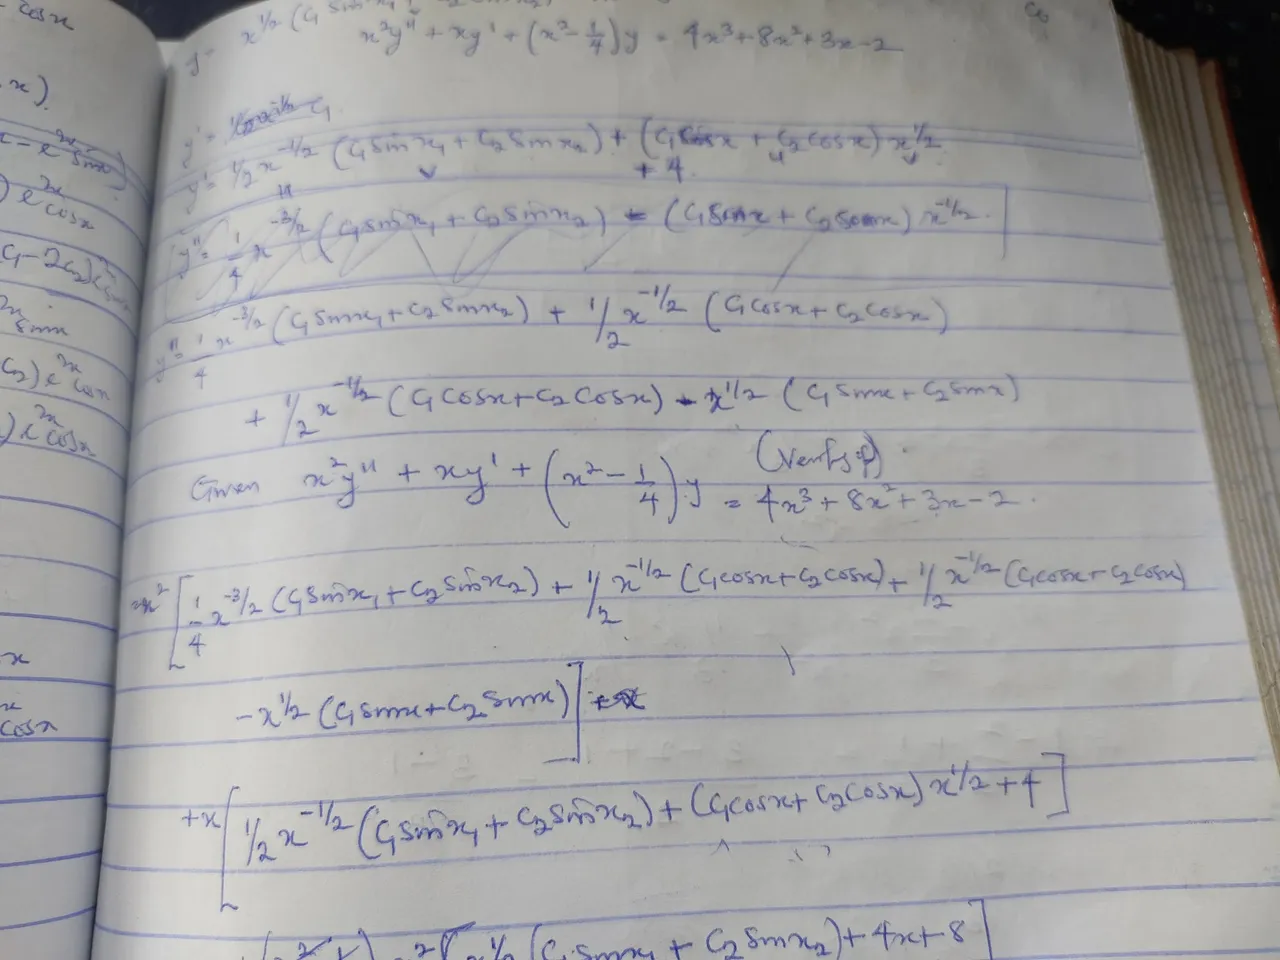 cosx
x).
e^x cosx
C₁-2C₂)e
sinx
C₂) e^x cosx
) e^x cosx
x
x
cosx
y = x^1/2 (C₁ sinx₁
x²y" + xy' + (x² - 1/4) y = 4x³ + 8x² + 3x - 2
y' =
y' = 1/2 x^-1/2 (C₁ sin x₁ + C₂ sin x₂) + (C₁ cosx + C₂ cosx) x^1/2
+ 4
y" = 1/4 x^-3/2 (C₁ sin x₁ + C₂ sin x₂) - (C₁ sinx + C₂ x) x^-1/2.
y" = 1/4 x^-3/2 (C₁ sin x₁ + C₂ sin x₂) + 1/2 x^-1/2 (C₁ cosx + C₂ cosx)
+ 1/2 x^-1/2 (C₁ cosx + C₂ cosx) - x^1/2 (C₁ sinx + C₂ sinx)
Given x²y" + xy' + (x² - 1/4) y = 4x³ + 8x² + 3x - 2.
= x² [ 1/4 x^-3/2 (C₁ sin x₁ + C₂ sin x₂) + 1/2 x^-1/2 (C₁ cosx + C₂ cosx) + 1/2 x^-1/2 (C₁ cosx + C₂ cosx)
- x^1/2 (C₁ sinx + C₂ sinx) ] + x
+ x [ 1/2 x^-1/2 (C₁ sin x₁ + C₂ sin x₂) + (C₁ cosx + C₂ cosx) x^1/2 + 4 ]
x^1/2 (C₁ sin x₁ + C₂ sin x₂) + 4x + 8 ]